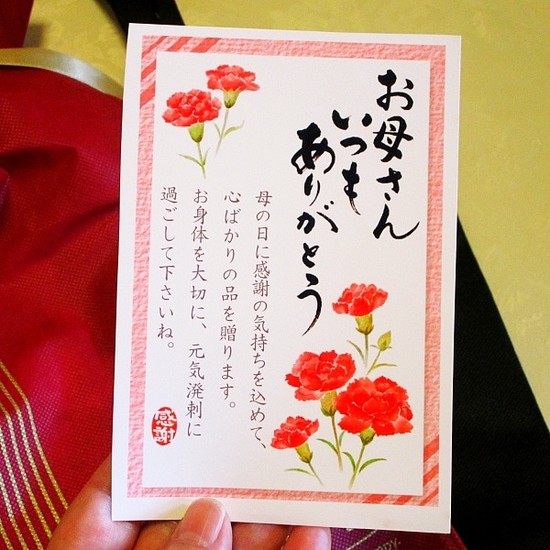 お母さん
いつも
ありがとう
母の日に感謝の気持ちを込めて、
心ばかりの品を贈ります。
お身体を大切に、元気溌剌に
過ごして下さいね。
感謝